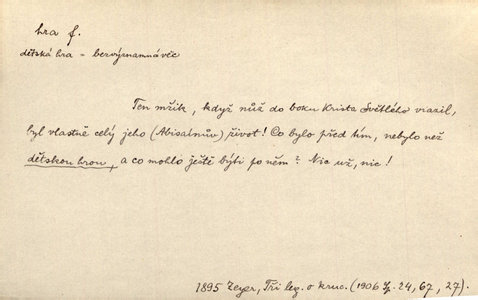 hra f.
dětská hra - bezvýznamná věc
Ten mžik, když nůž do boku Krista Světlého vrazil,
byl vlastně celý jeho (Abisaínův) život! Co bylo před tím, nebylo než
dětskou hrou, a co mohlo ještě býti po něm? Nic už, nic!
1895 Zeyer, Tři leg. o kruc. (1906 Sp. 24, 67, 27).